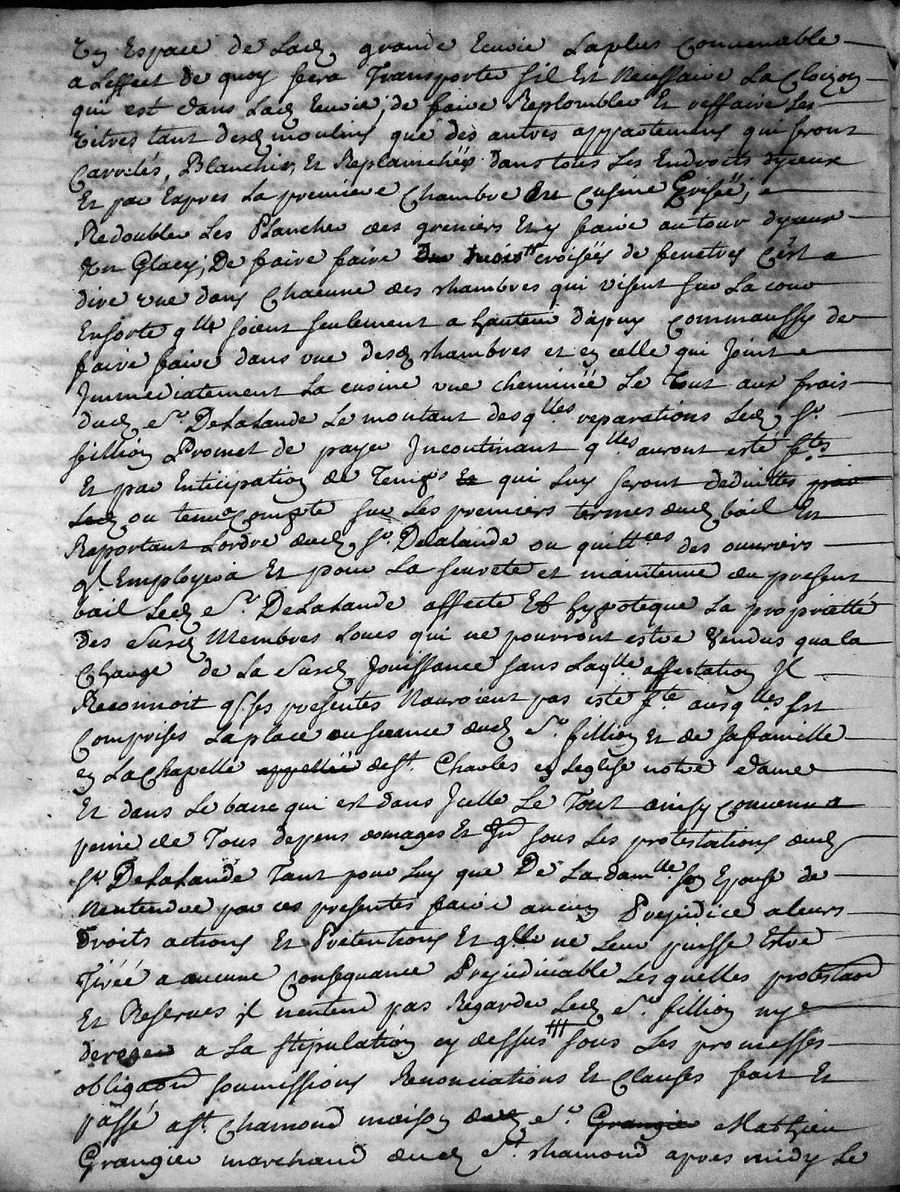 En Espace de Lad. grande Ecurie Laplus Convenable
a Leffect de quoy fera Transporter sil Est Necessaire La Cloizon
qui est dans Lad. Ecurie, de faire Replomber Et reffaire Les
vitres tant desd. moulins que des autres appartements qui seront
Carrelés, Blanchir, Et Replanchéés dans tous Les Endroits dyceux
Et par Expres La premiere Chambre Et Cusine Grisée, a
Redoubler Les Planche des greniers Et y faire autour dyceux
Un Glacy; De faire faire trois croisées de fenetres C'est a
dire une dans Chacune des chambres qui visent sur La cour
Ensorte qlle soient seulement a hauteur dapuy Commaussy de
faire faire dans une desd. chambres et en celle qui Joint
Jmmediatement La cusine une cheminée Le Tout aux frais
dud. Sr. DeLaLande Le montant desqlles reparations Led. Sr.
fillion Promet de payer Jncontinant qlles auront esté ftes
Et par Enticipation de Temps qui Luy seront deduittes
ou tenu compte sur Les premiers termes dud. bail En
Raportant Lordre dud. Sr. Delalande ou quittces des ouvriers
ql Employera Et pour La seureté et maintenue du present
bail Led. Sr. DeLaLande affecte Et hypoteque La propriatté
des Susd. Membres Loues qui ne pourront estre Vendus qua la
Charge de La Susd. Jouissance sans Laqlle affectation Jl
Reconnoit q. ses presentes Nauroient pas esté fte ausqlles Est
Comprises La place ou seance dud. Sr. fillion Et de sa famille
en La Chapelle de St. Charles en Leglise notre dame
Et dans Le banc qui est dans Jcelle Le Tout ainsy Convenu a
peine de Tous depens domages Et Jnt sous Les protestations dud.
Sr. DeLaLande Tant pour Luy que De La damlle son Epouse de
Nentendre par ces presentes faire aucun Prejudice a leurs
Droits actions Et Pretentions Et qlle ne Leur puisse Estre
Tirée a aucune Consequance Prejudiciable Lesquelles protestaons
Et Reserves il nentend pas Regarder Led. Sr. fillion ny
deroger a La stipulation cy dessus sous Les promesses
obligaons soumissions Renonciations Et Clauses fait Et
passé a St. Chamond maison du Sr. Mathieu
Grangier marchand dud. St. Chamond apres midy Le